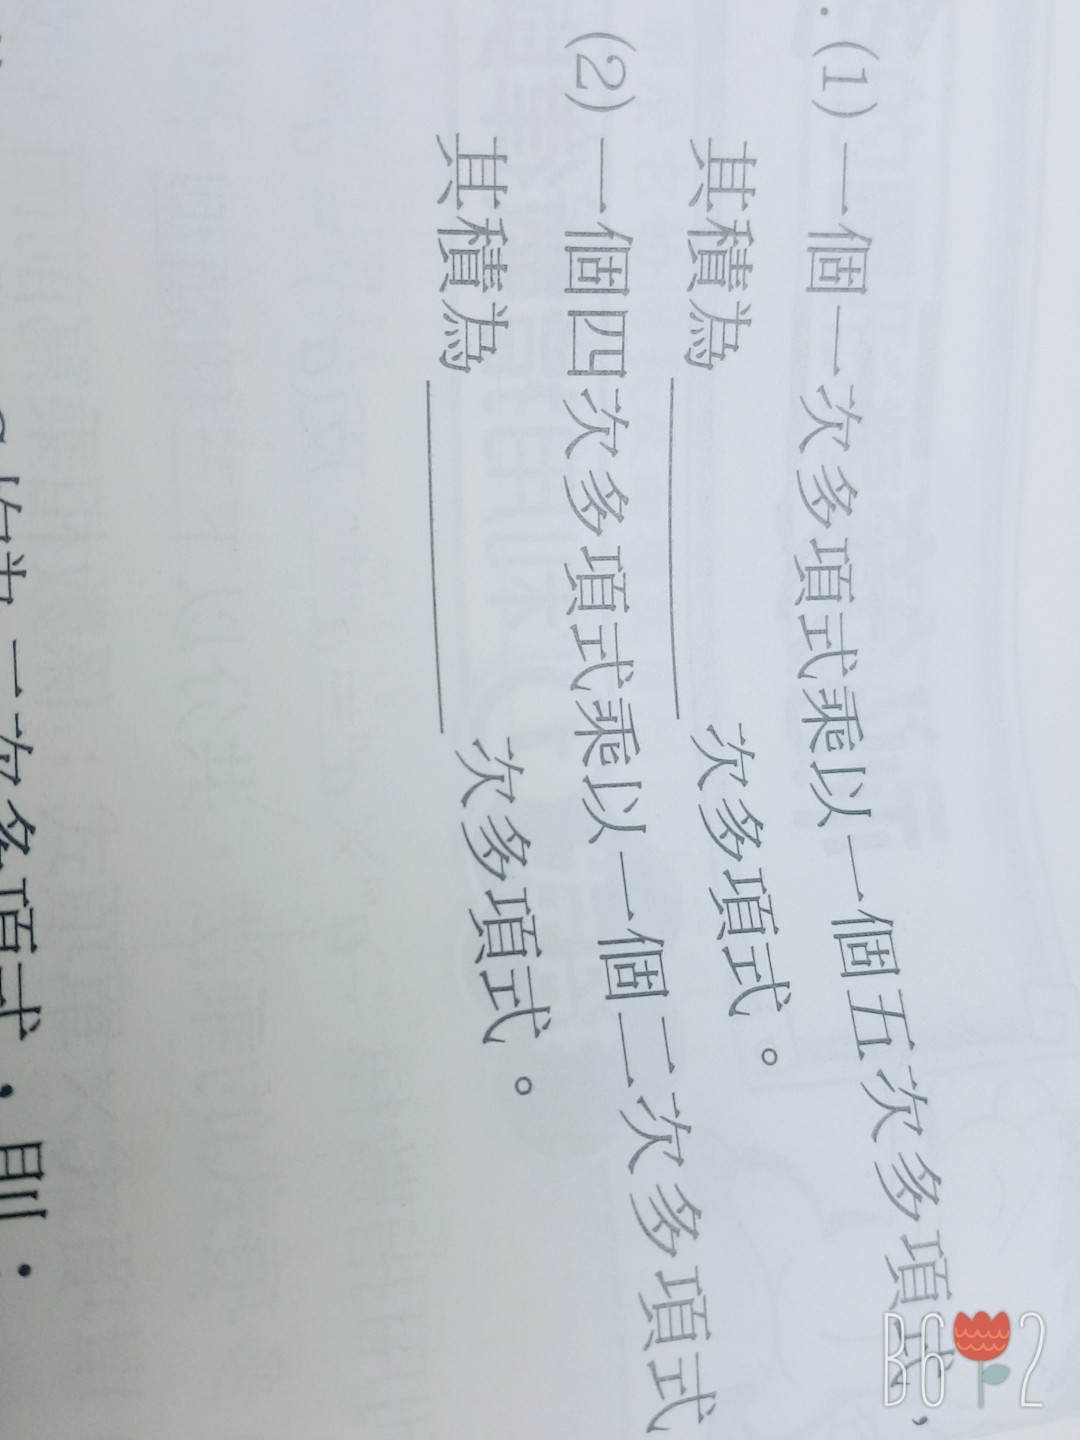 (1)一個一次多項式乘以一個五次多項式，
其積為______次多項式。
(2)一個四次多項式乘以一個二次多項式
其積為______次多項式。
均為二次多項式，則：
B612